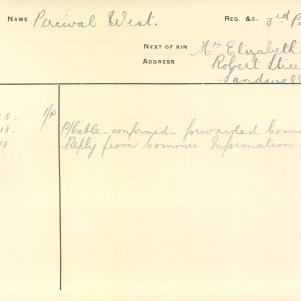 NAME Percival West. REG. &C. 3rd P
NEXT OF KIN Mrs Elizabeth
ADDRESS Robert Stree
Sandwell
8. 1/P P/Cable - confirmed - forwarded Com
18. Reply from Commrs Information
18